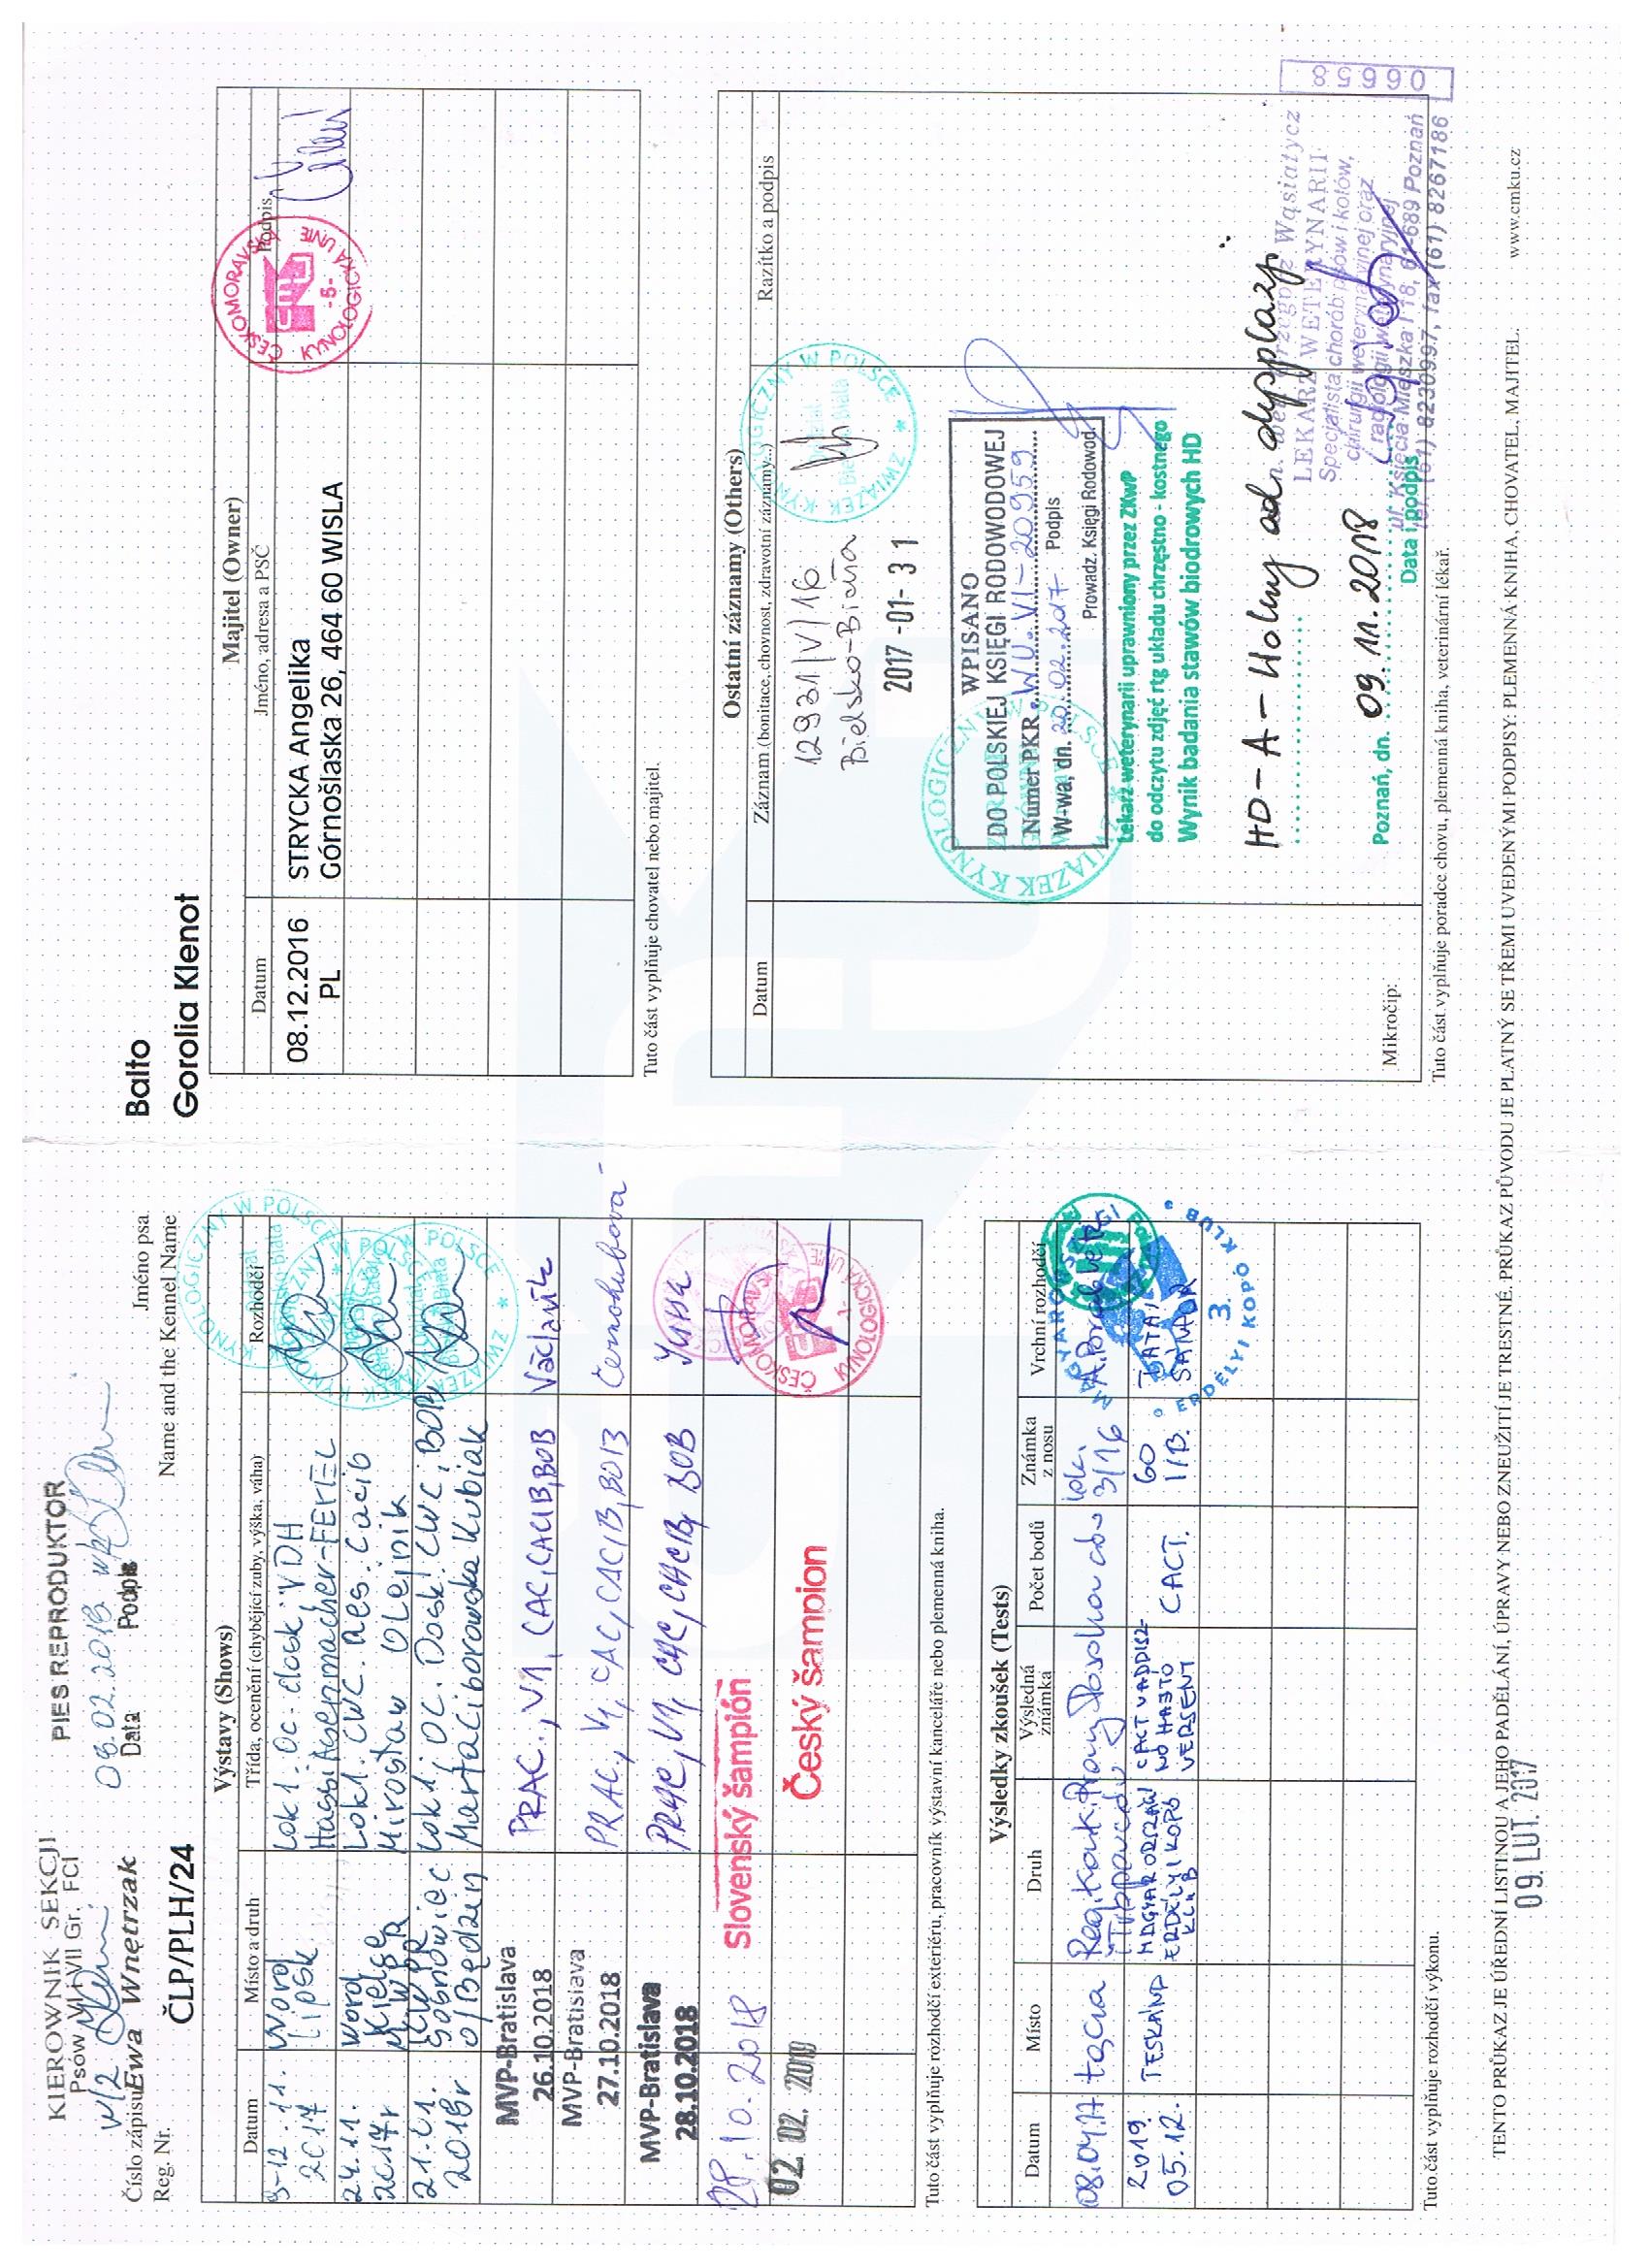 KIEROWNIK SEKCJI
Psow Myśl. VII Gr. FCI
w/z
Ewa Wnętrzak
PIES REPRODUKTOR
08.02.2018
Data
Podpis
Číslo zápisu
Reg. Nr.
ČLP/PLH/24
Jméno psa
Name and the Kennel Name
Balto
Gorolia Klenot
Výstavy (Shows)
Datum
Místo a druh
Třída, ocenění (chybějící zuby, výška, váha)
Rozhodčí
9-12.11.
2017
Lipsk
Lok 1. oc. dosk. VDH
Hassi Assenmacher-FEYEL
24.11.
2017r
Kielce
Lok 1. CWC. Res. Cacib
Mirosław Olejnik
21.01.
2018r
Sosnowiec
o/Będzin
Lok 1, oc. Dosk. CWC, BOB
Marta Ciborowska Kubiak
MVP-Bratislava
26.10.2018
PRAC., V1, CAC, CACIB, BOB
Václavík
MVP-Bratislava
27.10.2018
PRAC., V1, CAC, CACIB, BOB
MVP-Bratislava
28.10.2018
PRAC, V1, CAC, CACIB, BOB
28.10.2018
Slovenský šampión
02. 02.
Český šampion
ČESKOMORAVSKÁ KYNOLOGICKÁ UNIE
Tuto část vyplňuje rozhodčí exteriéru, pracovník výstavní kanceláře nebo plemenná kniha.
Výsledky zkoušek (Tests)
Datum
Místo
Druh
Výsledná známka
Počet bodů
Známka z nosu
Vrchní rozhodčí
08.04.17
Tropowców
lok.
3/16
2019
05.12.
MAGYAR ORSZÁGI
ERDÉLYI KOPÓ
KLUB
CACT VADDISZ-
NÓ HAJTÓ
VERSENY
CACT.
60
I/B.
TATAI
SÁNDOR
ERDÉLYI KOPÓ KLUB
3.
Tuto část vyplňuje rozhodčí výkonu.
Majitel (Owner)
Datum
Jméno, adresa a PSČ
Podpis
08.12.2016
PL
STRYCKA Angelika
Górnošlaska 26, 464 60 WISLA
ČESKOMORAVSKÁ KYNOLOGICKÁ UNIE
-5-
Tuto část vyplňuje chovatel nebo majitel.
Ostatní záznamy (Others)
Datum
Záznam (bonitace, chovnost, zdravotní záznamy...)
Razítko a podpis
12931/V/16
Bielsko-Biała
2017-01-31
ZWIĄZEK KYNOLOGICZNY W POLSCE
WPISANO
DO POLSKIEJ KSIĘGI RODOWODOWEJ
Numer PKR. W.U. VI-20959
W-wa, dn. 20.02.2017 Podpis
Prowadz. Księgi Rodowod.
Lekarz weterynarii uprawniony przez ZKwP
do odczytu zdjęć rtg układu chrzęstno - kostnego
Wynik badania stawów biodrowych HD
HD-A-Wolny od dysplazji
Poznań, dn. 09.11.2018
Data i podpis
Wąsiatycz
LEKARZ WETERYNARII
Specjalista chorób psów i kotów,
chirurgii weterynaryjnej oraz
radiologii weterynaryjnej
ul. Księcia Mieszka I 18, 61-689 Poznań
tel. (61) 8230997, fax (61) 8267186
06658
Mikročip:
Tuto část vyplňuje poradce chovu, plemenná kniha, veterinární lékař.
TENTO PRŮKAZ JE ÚŘEDNÍ LISTINOU A JEHO PADĚLÁNÍ, ÚPRAVY NEBO ZNEUŽITÍ JE TRESTNÉ. PRŮKAZ PŮVODU JE PLATNÝ SE TŘEMI UVEDENÝMI PODPISY: PLEMENNÁ KNIHA, CHOVATEL, MAJITEL.
www.cmku.cz
09. LUT. 2017